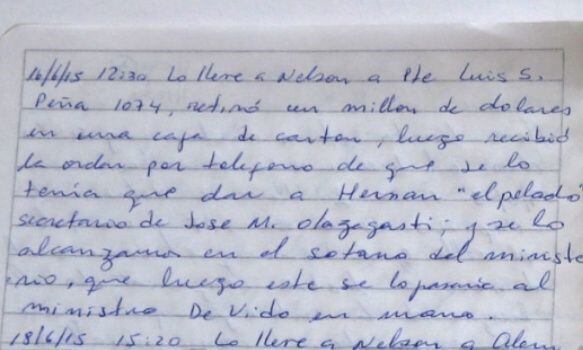 16/6/15 12:30 Lo lleve a Nelson a Pte Luis S.
Peña 1074, retiró un millon de dolares
en una caja de carton, luego recibió
la orden por telefono de que se lo
tenia que dar a Hernan "el pelado"
secretario de Jose M. Olazagasti; y se lo
alcanzamos en el sotano del ministe
rio, que luego este se lo pasaria al
ministro De Vido en mano.
18/6/15 15:20 Lo lleve a Nelson a Alem